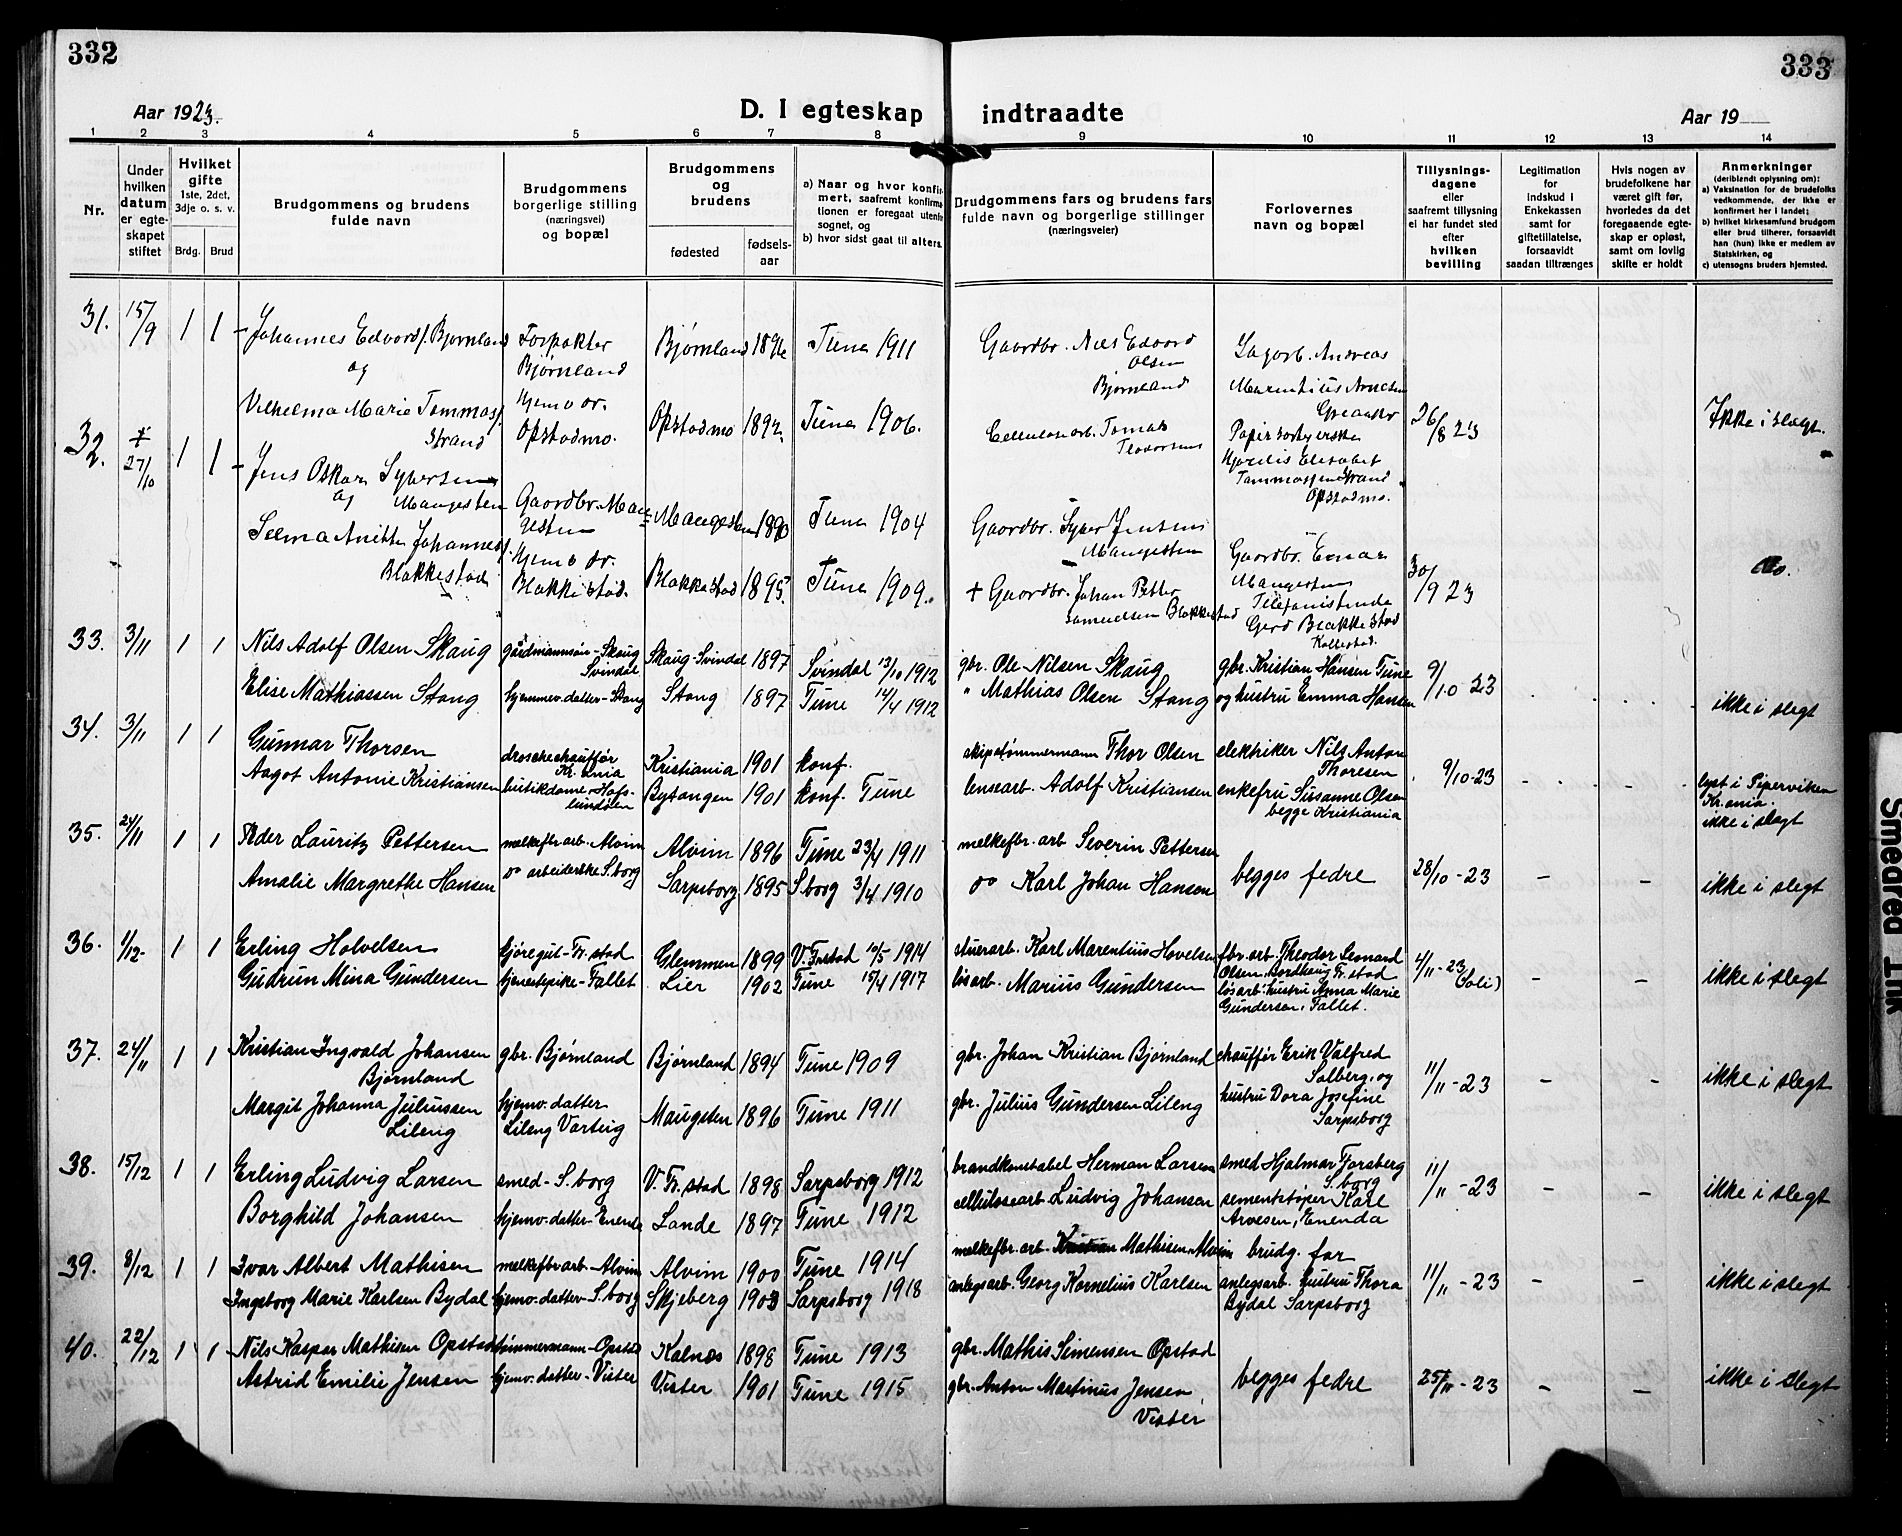 332
333
Aar 1923.
D. I egteskap indtraadte
Aar 19
1 2 3 4 5 6 7 8 9 10 11 12 13 14
Nr.
Under hvilken datum er egteskapet stiftet
Hvilket gifte 1ste, 2det, 3dje o. s. v.
Brdg. Brud
Brudgommens og brudens fulde navn
Brudgommens borgerlige stilling (næringsvei) og bopæl
Brudgommens og brudens
fødested
fødselsaar
a) Naar og hvor konfirmert, saafremt konfirmationen er foregaat utenfor sognet, og
b) hvor sidst gaat til alters.
Brudgommens fars og brudens fars fulde navn og borgerlige stillinger (næringsveier)
Forlovernes navn og bopæl
Tillysningsdagene eller saafremt tillysning ei har fundet sted efter hvilken bevilling
Legitimation for indskud i Enkekassen samt for giftetillatelse, forsaavidt saadan tiltrænges
Hvis nogen av brudefolkene har været gift før, hvorledes da det foregaaende egteskap er opløst, samt om lovlig skifte er holdt
Anmerkninger
(deriblandt oplysning om):
a) Vaksination for de brudefolks vedkommende, der ikke er konfirmert her i landet;
b) hvilket kirkesamfund brudgom eller brud tilhører, forsaavidt han (hun) ikke er medlem av Statskirken, og
c) utensogns bruders hjemsted.
31. 15/9 1 1 Johannes Edvard Bjørnland Forpakter Bjørnland Bjørnland 1896 Tune 1911 Gaardbr. Nils Edvard Olsen Bjørnland Andreas Marentius
og
Vilhelma Marie Tommas. Strand Hjemv. dr. Opstadmo. Opstadmo 1892. Tune 1906. Cellulosearb. Tomas Teodorsen Hjørdis Elisabet Tommassen Strand Opstadmo. 26/8 23 Ikke i slegt.
32. 27/10 1 1 Jens Oskar Syversen Maugesten Gaardbr. Maugesten Maugesten 1890 Tune 1904 Gaardbr. Syver Jensen Maugesten Gaardbr. Einar Maugesten
og
Selma Anette Johannes. Blakkestad Hjemv. dr. Blakkestad. Blakkestad 1895. Tune 1909. + Gaardbr. Johan Petter Samuelsen Blakkestad Telefonistinde Gerd Blakkestad 30/9 23 do.
33. 3/11 1 1 Nils Adolf Olsen Skaug gårdmannsøn - Skaug Svindal Skaug-Svindal 1897 Svindal 13/10 1912 gbr. Ole Nilsen Skaug gbr. Kristian Hansen Tune
Elise Mathiassen Stang hjemmev. datter - Stang Stang 1897 Tune 14/4 1912 " Mathias Olsen Stang og hustru Emma Hansen 9/10-23 ikke i slegt
34. 3/11 1 1 Gunnar Thorsen droschechauffør Kr.ania Kristiania 1901 konf. skipstømmermann Thor Olsen elektriker Nils Anton Thoresen
Aagot Antonie Kristiansen butikdame, Hafslundsøen Bytangen 1901 konf. Tune lensearb. Adolf Kristiansen enkefru Susanne Olsen begge Kristiania 9/10-23 lyst i Piperviken Kr.ania. ikke i slegt
35. 24/11 1 1 Peder Lauritz Pettersen melkefbr.arb. Alvim Alvim 1896 Tune 23/4 1911 melkefbr. arb Severin Pettersen
Amalie Margrethe Hansen do arbeiderske S.borg Sarpsborg 1895 S.borg 3/4 1910 do Karl Johan Hansen begges fedre 28/10-23 - - ikke i slegt
36. 1/12- 1 1 Erling Holvelsen kjøregut - Fr.stad Glemmen 1899 V. Fr.stad 10/5 1914 stuerarb. Karl Marentius Hovelsen fbr.arb. Theodor Leonard Olsen, Nordhaug Fr.stad
Gudrun Mina Gundersen tjenestepike - Fallet Lier 1902 Tune 15/4 1917 løsarb. Marius Gundersen løsarb. hustru Anna Marie Gundersen, Fallet. 4/11-23 (Soli) - - ikke i slegt
37. 24/11 1 1 Kristian Ingvald Johansen Bjørnland gbr. Bjørnland Bjørnland 1894 Tune 1909 gbr. Johan Kristian Bjørnland chauffør Erik Valfred Solberg, og
Margit Johanna Juliussen Lileng hjemv. datter Lileng Varteig Maugsten 1896 Tune 1911 gbr. Julius Gundersen Lileng hustru Dora Josefine Sarpsborg 11/11-23 - - ikke i slegt
38. 15/12 1 1 Erling Ludvig Larsen smed - S.borg V. Fr.stad 1898 Sarpsborg 1912 brandkonstabel Herman Larsen smed Hjalmar Forsberg S.borg
Borghild Johansen hjemv. datter - Enenda Lande 1897 Tune 1912 cellulosearb. Ludvig Johansen sementstøper Karl Arvesen, Enenda 11/11-23 - - ikke i slegt
39. 8/12 1 1 Ivar Albert Mathisen melkefbr.arb - Alvim Alvim 1900 Tune 1914 melkefbr.arb. Kristian Mathisen, Alvim brudg. far
Ingeborg Marie Karlsen Bydal hjemv. datter - S.borg Skjeberg 1903 Sarpsborg 1918 anlegsarb. Georg Kornelius Karlsen anlegsarb. hustru Thora Bydal Sarpsborg 11/11-23 - - ikke i slegt
40. 22/12 1 1 Nils Kaspar Mathisen Opstad tømmermann - Opstad Kalnes 1898 Tune 1913 gbr. Mathis Simensen Opstad
Astrid Emilie Jensen hjemv. datter - Vister Vister 1901 Tune 1915 gbr. Anton Martinus Jensen Vister begges fedre 25/11-23 - - ikke i slegt
Smeared Ink